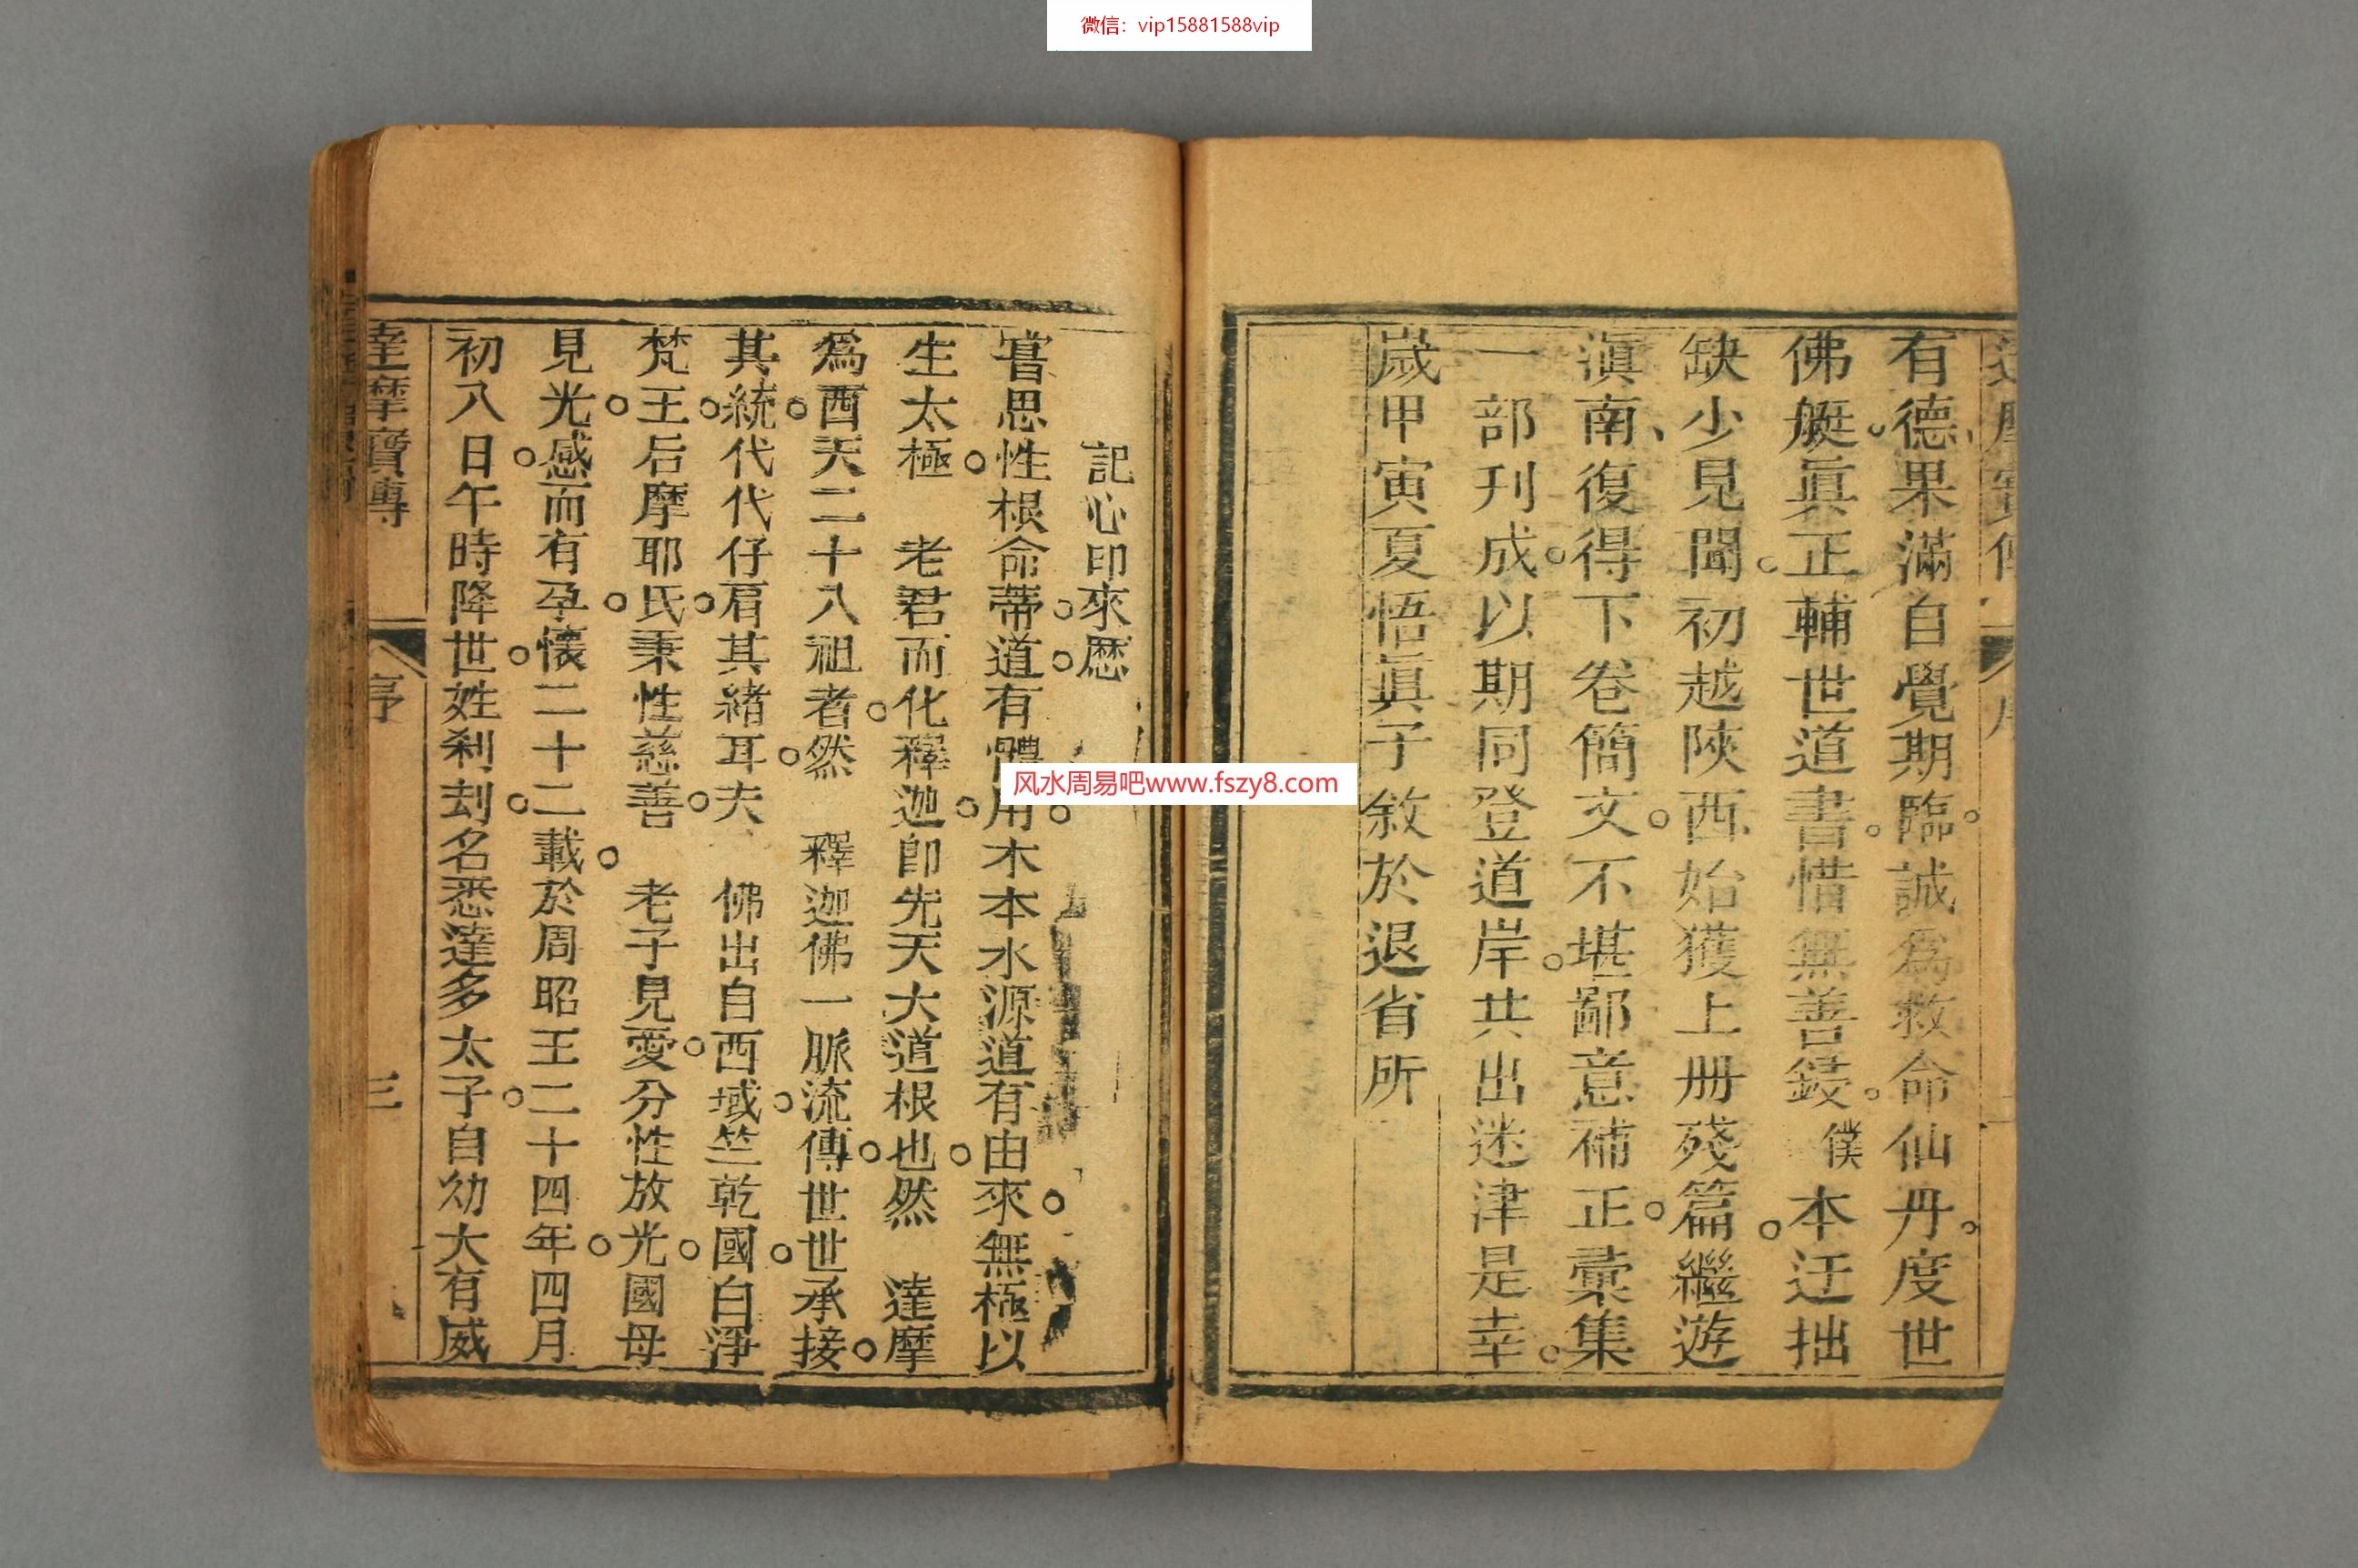 微信：vip15881588vip
有德、果滿自覺期臨。誠為救命仙丹。度世
佛艇。眞正輔世道書。惜無善錽。僕本迂拙
缺少見聞。初越陝西始獲上册殘篇。繼遊
滇南、復得下卷簡文。不堪鄙意補正。彙集
一部刋成。以期同登道岸。共出迷津是幸。
歲甲寅夏悟眞子敘於退省所
記心印來歴
嘗思性根命蒂。道。有體用。木本水源道有由來。無極以
生太極。老君而化釋迦。卽先天大道根也。然達摩
爲西天二十八祖者。然釋迦佛一脈流傳。世世承接。
其統。代代仔肩其緒耳。夫佛出自西域。竺乾國。白淨
梵王。后摩耶氏。秉性慈善。老子見愛。分性放光。國母
見光。感而有孕。懷二十二載。於周昭王二十四年。四月
初八日。午時降世。姓刹刦。名悉達多太子。自幼大有威
達摩寶傳
序
三
风水周易吧www.fszy8.com